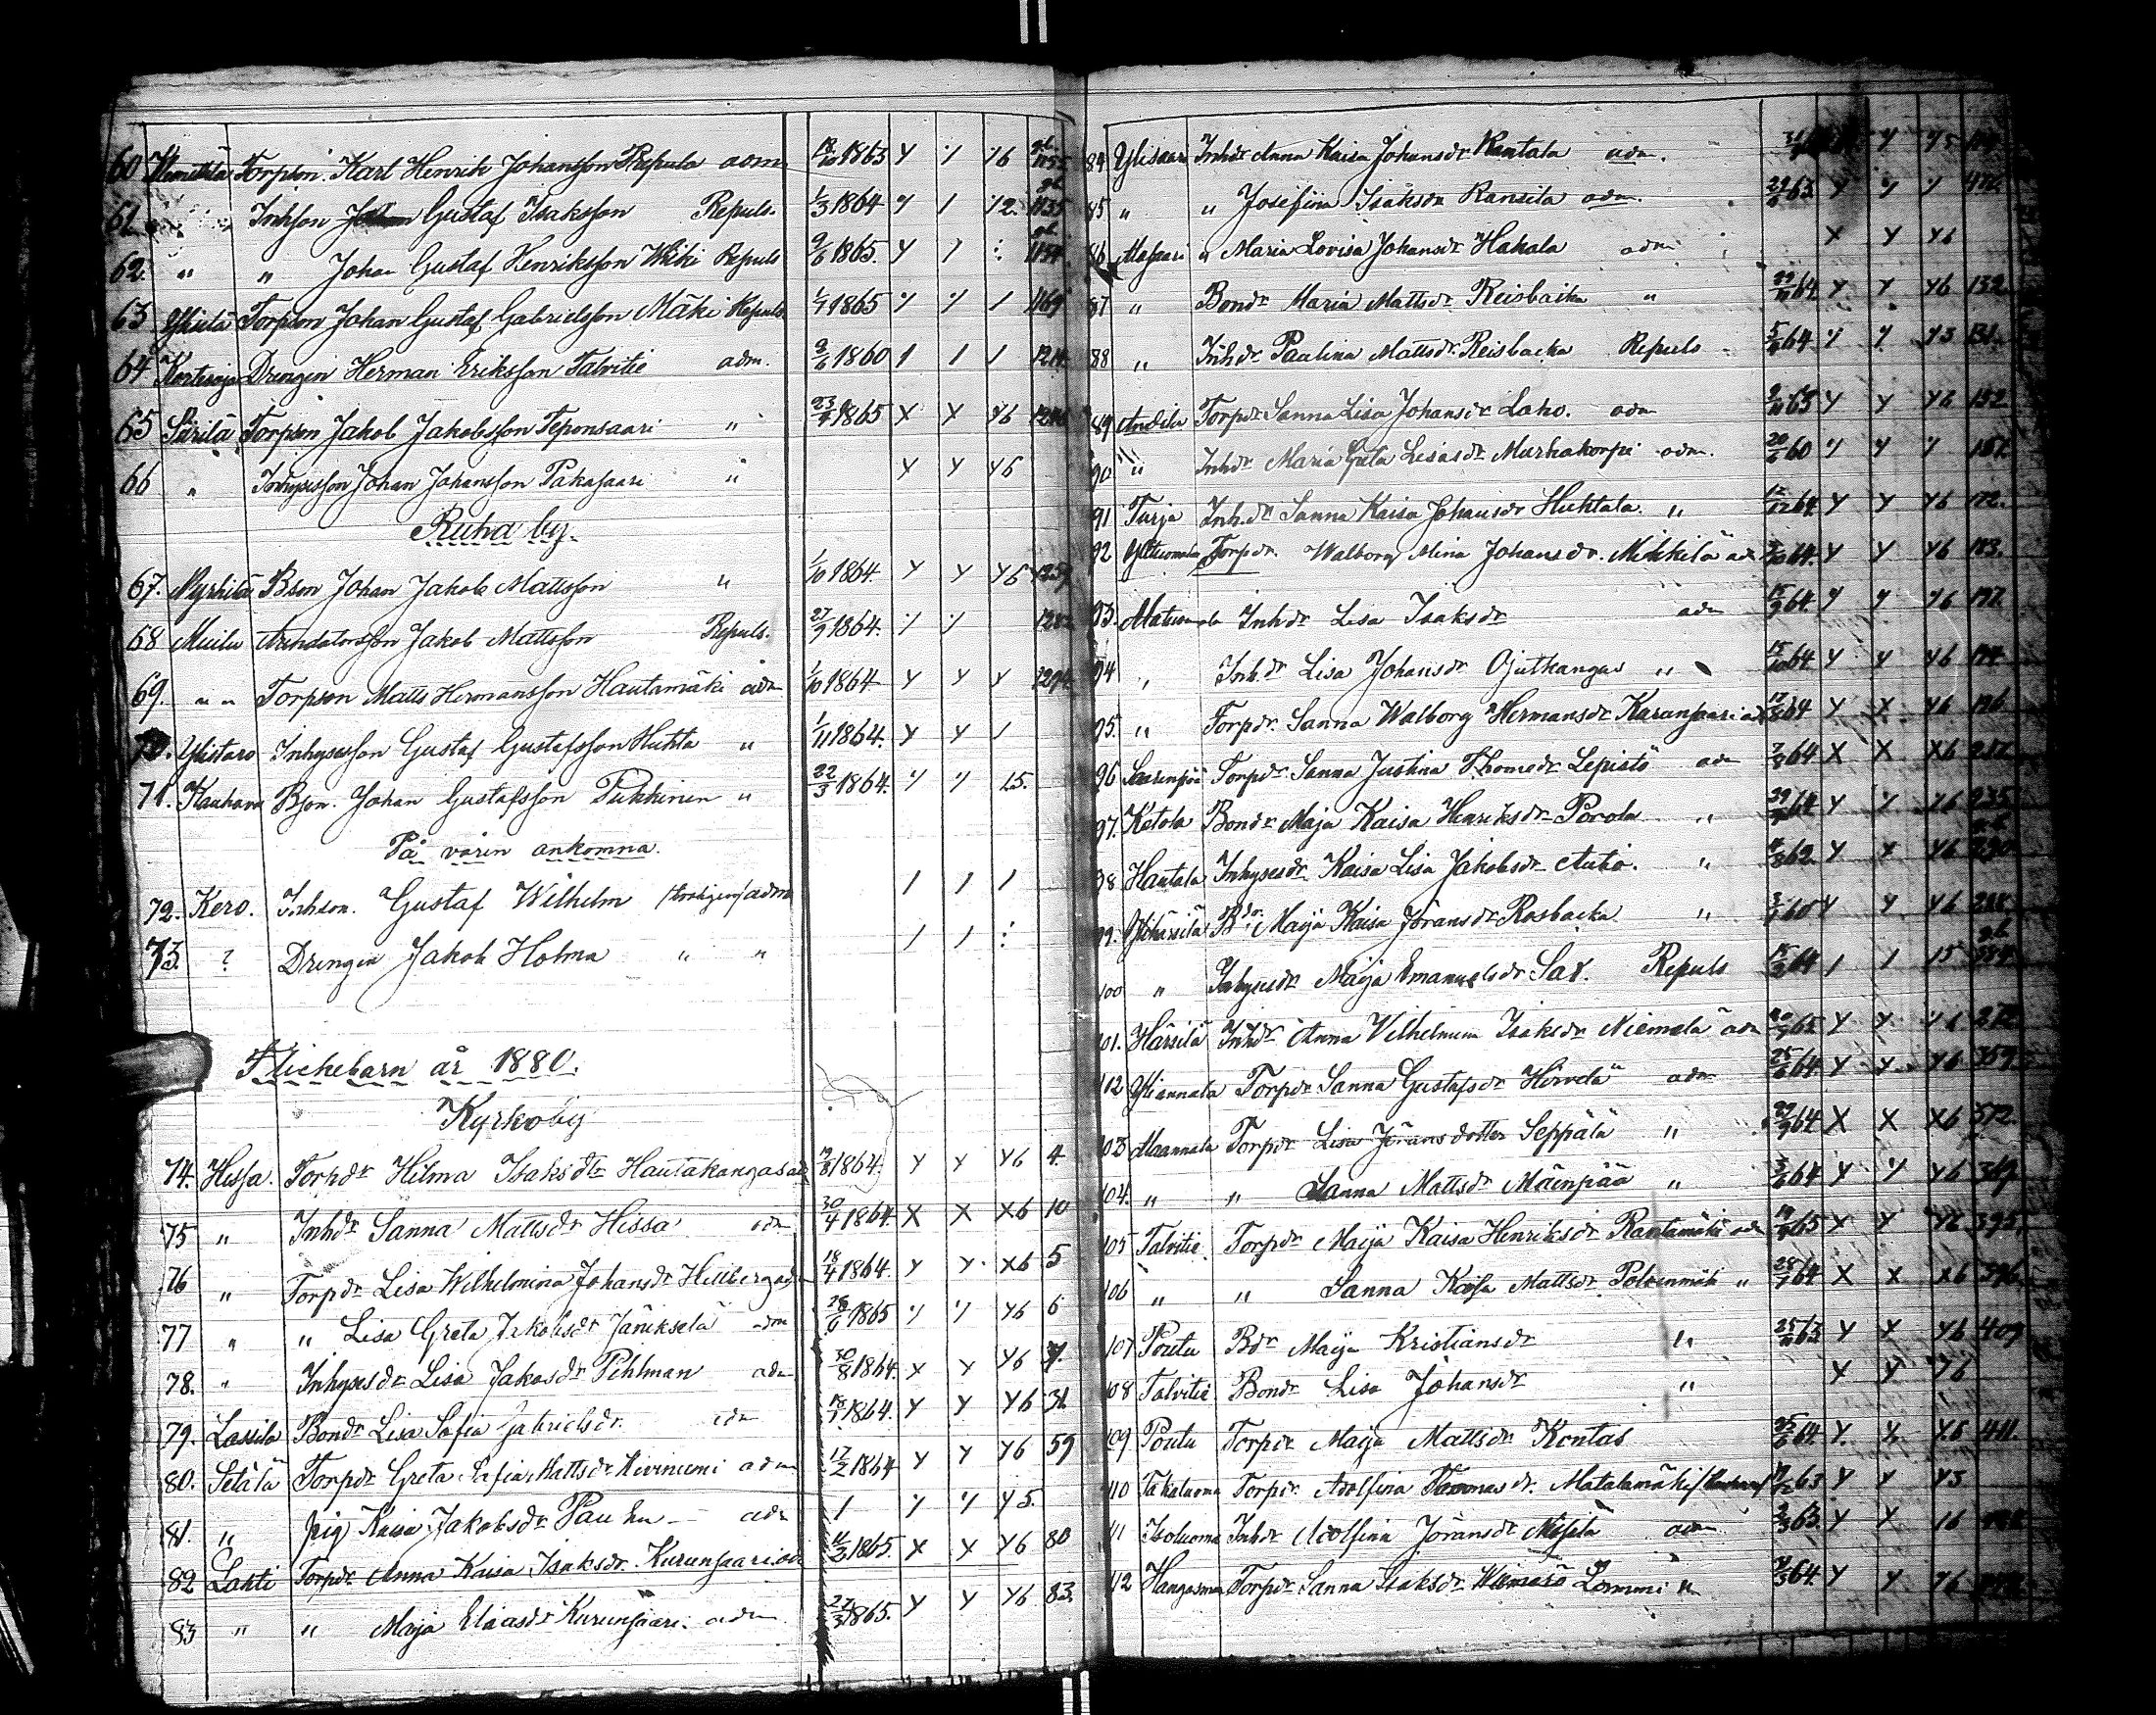 60 Torpson. Karl Henrik Johansson Repula adm. 18/10 1863 y y y6
61 " Inhson Gustaf Isaksson Repuls. 1/3 1864 y 1 y2. 1135
62. " " Johan Gustaf Henriksson Wiki Repuls 9/6 1865. y 1
63 Torpson Johan Gustaf Gabrielsson Mäki Repuls 1865 y y 1 1169
64 Kortesoja Drengen Herman Eriksson Talvitie adm. 1860 1 1 1
65 Särilä Torpson Jakob Jakobsson Teponsaari " 23/4 1865 x y y6
66 " Inhysesson Johan Johansson Pakasaari " y y y5
Ruha by.
67. Nyrhilä Bson Johan Jakob Mattsson " 1/10 1864. y y y5
68 Muilu Arendatorsson Jakob Mattsson Repuls. 27/9 1864. y y
69. " " Torpson Matts Hermansson Hautamäki adm 1/10 1864 y y y 1294
70. Ylistaro Inhysesson Gustaf Gustafsson Huhta " 1/11 1864. y y 1
71. Kauhava Bson. Johan Gustafsson Pukkinen " 22/3 1864. y y 15.
På våren ankomna.
72. Kero. Inhson. Gustaf Wilhelm adm 1 1 1
73. ? Drengen Jakob Holma " " 1 1
Flickebarn år 1880.
Kyrkoby
74. Hissa. Torpdr Hilma Isaksdtr Hautakangas ad 19/8 1864. y y y6 4.
75 " Inhdr Sanna Mattsdr Hissa adm 30/4 1864. x x x6 10
76 " Torpdr Lisa Wilhelmina Johansdr Hellberg adm 18/4 1864. y y x6 5
77 " " Lisa Greta Jakobsdr Jäniksela adm 28/6 1865 y y y6 6
78. " Inhysesdr Lisa Jakobsdr Pihlman adm 30/8 1864. x y y6 7.
79. Lassila Bondr Lisa Sofia Gabrielsdr. adm 18/1 1864. y y y6 31
80. Setälä Torpdr Greta Sofia Mattsdr Kiviniemi adm 17/2 1864 y y y6 59
81. " pig Kaisa Jakobsdr Pauhu — adm 1 y y y5.
82 Lahti Torpdr Anna Kaisa Isaksdr. Kurunsaari adm 1865. x y y6 80
83 " " Maija Eliasdr Kurunsaari adm 1865. y y y6 83.
84 Ylisaari Inhdr Anna Kaisa Johansdr Rantala adm. y y5
85 " " Josefina Isaksdr Ransila adm. 29/6 63. y y y
86 " Maria Lovisa Johansdr Hakala adm x y y6
87 " Bondr Maria Mattsdr Reisbacka " 64. y y y6 132
88 " Inhdr Paulina Mattsdr Reisbacka Repuls 64. y y y3 131.
89 Andila Torpdr Sanna Lisa Johansdr Laho. adm 65 y y y6 152
90 " Inhdr Maria Greta Lisasdr Murhakorpi adm. 20/6 60 y y y 157.
91 Turja Inh.dr Sanna Kaisa Johansdr Huhtala " 12/12 64. y y y6 172.
92 Torpdr. Walborg Mina Johansdr. Mikkilä ad 64. y y y6 183.
93. Inhdr Lisa Isaksdr adm 15/9 64. y y y6 197.
94 " Inhdr Lisa Johansdr Ojutkangas " 15/10 64. y y y6 194.
95. " Torpdr. Sanna Walborg Hermansdr Karunsaari ad 17/8 64 y x y6 196
96 Saarenpää Torpdr. Sanna Justina Thomasdr Lepistö adm 7/8 64 x x x6
97. Ketola Bondr Maja Kaisa Henriksdr Porola " 64 y y y6 235
98 Hautala Inhysesdr Kaisa Lisa Jakobsdr Autio. " 62 y x y6 230
99. Bdr. Maija Kaisa Jöransdr Rosbacka " 65 y y y6
100 " Inhysesdr Maija Emanuelsdr Sax. Repuls 15/2 64 1 1 15
101. Härsilä Inhdr Anna Vilhelmina Isaksdr Niemelä adm 65 y y y6 272
102 Yliannala Torpdr Sanna Gustafsdr Hirvelä adm 25/6 64. y y y6 359
103 Maannala Torpdr Lisa Jöransdotter Seppälä " 27/9 64 x x x6 572.
104. " " Sanna Mattsdr Mäinpää " 3/6 64 y y y6 369
105 Talvitie. Torpdr Maija Kaisa Henriksdr Rantamäki adm 65 x y y6 395,
106 " " Sanna Kaisa Mattsdr. " 28/1 64 x x x6 396
107 Poutu Bdr Maija Kristiansdr " 63. y x y6 409
108 Talvitie Bondr Lisa Johansdr " x y y6
109 Poutu Torpdr Maija Mattsdr Kontas 25/6 64. y. y. y5 411.
110 Takaluoma Torpdr. Adolfina Thomasdr. Matalamäki 63 y y y3
111 Isoluoma Inhdr Adolfina Jöransdr Nissilä adm 2/3 63. y x 16
112 Torpdr Sanna Isaksdr Lammi " 64. y y y6